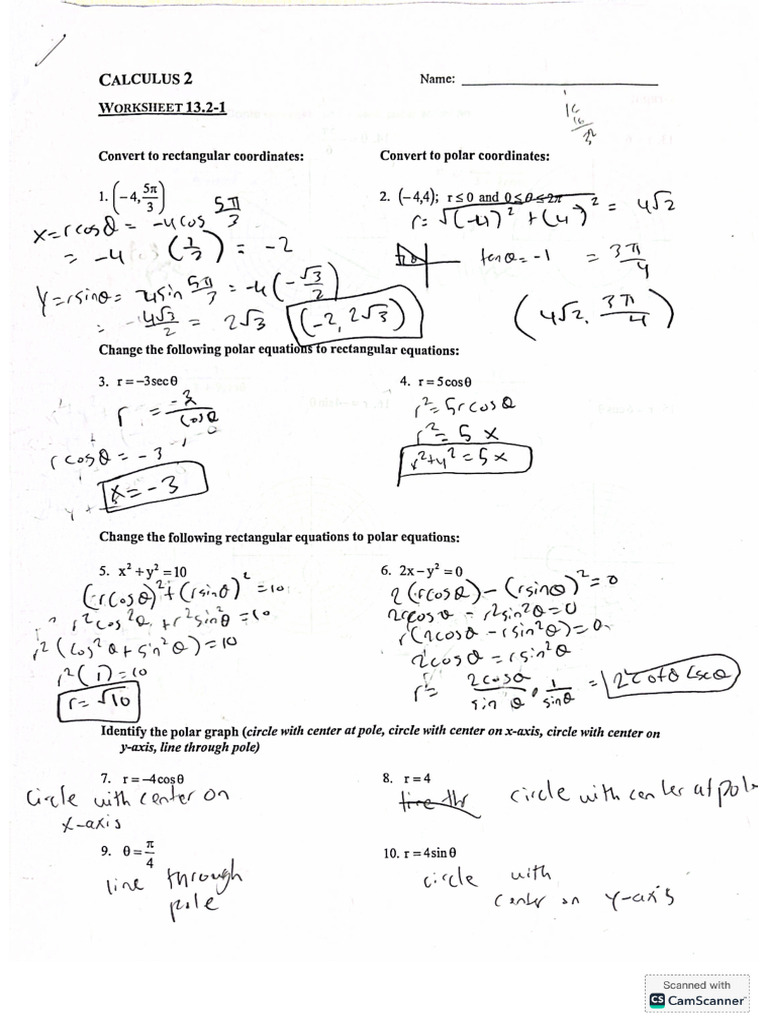 CALCULUS 2
Name:
WORKSHEET 13.2-1
16
16
32
Convert to rectangular coordinates:
Convert to polar coordinates:
1. (-4, 5π/3)
x = r cosθ = -4 cos 5π/3
= -4 (1/2) = -2
y = r sinθ = -4 sin 5π/3 = -4 (-√3/2)
= -4√3/2 = 2√3 (-2, 2√3)
2. (-4,4); r ≤ 0 and 0 ≤ θ ≤ 2π
r = √(-4)² + (4)² = 4√2
tanθ = -1 = 3π/4
(4√2, 3π/4)
Change the following polar equations to rectangular equations:
3. r = -3secθ
r = -3/cosθ
r cosθ = -3
x = -3
4. r = 5cosθ
r² = 5r cosθ
r² = 5x
x² + y² = 5x
Change the following rectangular equations to polar equations:
5. x² + y² = 10
(r cosθ)² + (r sinθ)² = 10
r² cos²θ + r² sin²θ = 10
r² (cos²θ + sin²θ) = 10
r² (1) = 10
r = √10
6. 2x - y² = 0
2(r cosθ) - (r sinθ)² = 0
2r cosθ - r² sin²θ = 0
r(2cosθ - r sin²θ) = 0
2cosθ = r sin²θ
r = 2cosθ/sinθ · 1/sinθ = 2cotθ cscθ
Identify the polar graph (circle with center at pole, circle with center on x-axis, circle with center on
y-axis, line through pole)
7. r = -4cosθ
circle with center on
x-axis
8. r = 4
line thr circle with center at pole
9. θ = π/4
line through
pole
10. r = 4sinθ
circle with
center on y-axis
Scanned with
CS CamScanner